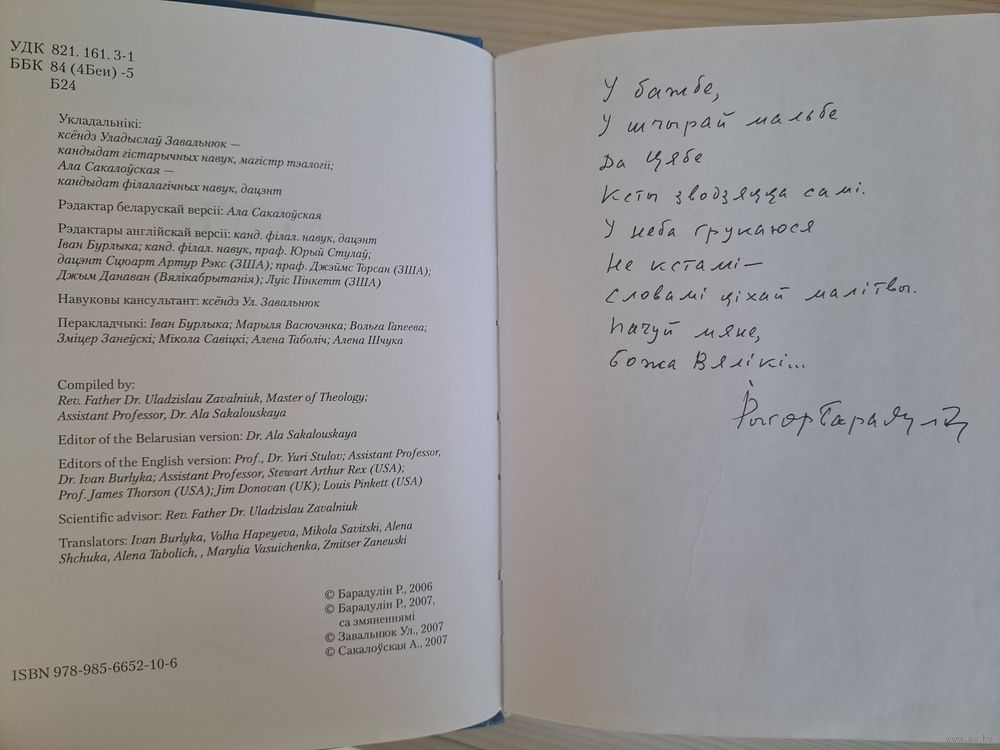 УДК 821. 161. 3-1
ББК 84 (4Беи) -5
Б24
Укладальнікі:
ксёндз Уладыслаў Завальнюк —
кандыдат гістарычных навук, магістр тэалогіі;
Ала Сакалоўская —
кандыдат філалагічных навук, дацэнт
Рэдактар беларускай версіі: Ала Сакалоўская
Рэдактары англійскай версіі: канд. філал. навук, дацэнт
Іван Бурлыка; канд. філал. навук, праф. Юрый Стулаў;
дацэнт Сцюарт Артур Рэкс (ЗША); праф. Джэймс Торсан (ЗША);
Джым Данаван (Вялікабрытанія); Луіс Пінкетт (ЗША)
Навуковы кансультант: ксёндз Ул. Завальнюк
Перакладчыкі: Іван Бурлыка; Марыля Васючэнка; Вольга Гапеева;
Зміцер Занеўскі; Мікола Савіцкі; Алена Таболіч; Алена Шчука
Compiled by:
Rev. Father Dr. Uladzislau Zavalniuk, Master of Theology;
Assistant Professor, Dr. Ala Sakalouskaya
Editor of the Belarusian version: Dr. Ala Sakalouskaya
Editors of the English version: Prof., Dr. Yuri Stulov; Assistant Professor,
Dr. Ivan Burlyka; Assistant Professor, Stewart Arthur Rex (USA);
Prof. James Thorson (USA); Jim Donovan (UK); Louis Pinkett (USA)
Scientific advisor: Rev. Father Dr. Uladzislau Zavalniuk
Translators: Ivan Burlyka, Volha Hapeyeva, Mikola Savitski, Alena
Shchuka, Alena Tabolich, , Marylia Vasuichenka, Zmitser Zaneuski
© Барадулін Р., 2006
© Барадулін Р., 2007,
са змяненнямі
© Завальнюк Ул., 2007
© Сакалоўская А., 2007
ISBN 978-985-6652-10-6
У бажбе,
У шчырай мальбе
Да Цябе
Ксты зводзяцца самі.
У неба грукаюся
Не кстамі—
Словамі ціхай малітвы.
Пачуй мяне,
Божа Вялікі...
Рыгор Барадулін
www.ay.by